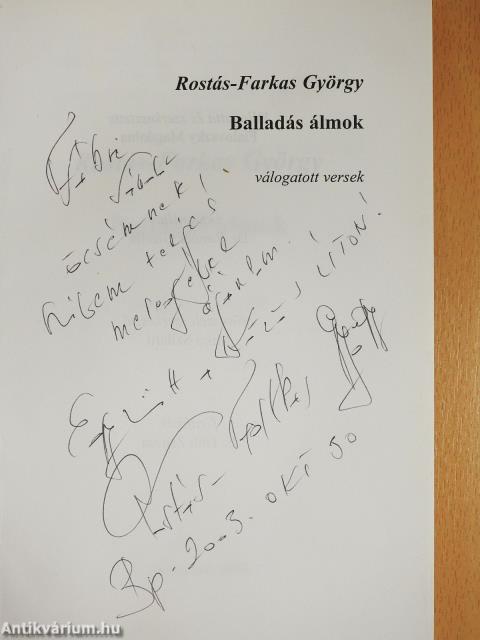 Rostás-Farkas György
Balladás álmok
válogatott versek
Fábri
öcsémnek!
Szívem teljes
melegével
ajánlom!
Együtt a ÚTON!
Rostás-Farkas György
Bp. 2003. okt 30
Antikvárium.hu